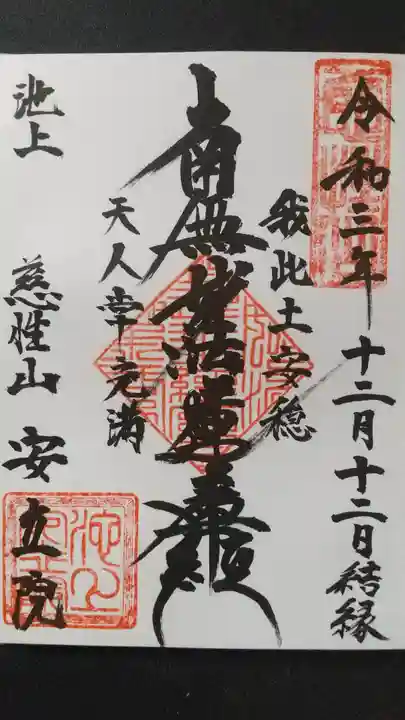 令和三年十二月十二日結縁
我此土安穏
南無妙法蓮華経
天人常充満
池上
慈性山 安立院